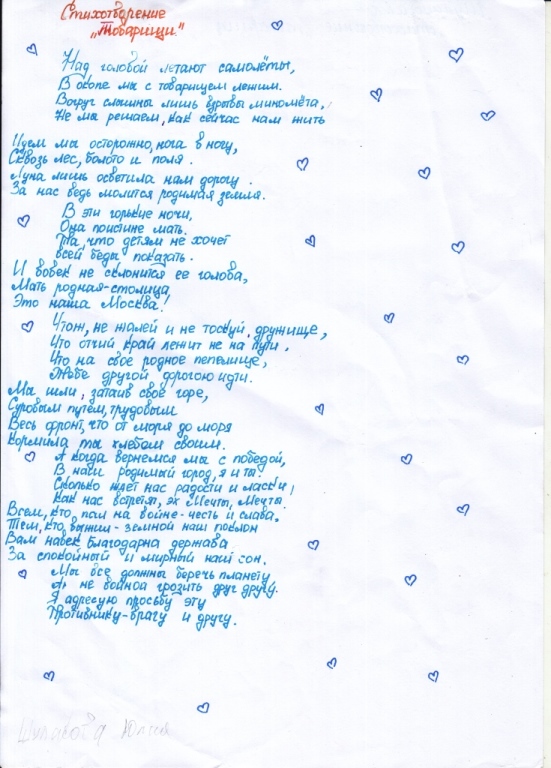 Стихотворение
„Товарищи."
Над головой летают самолёты,
В окопе мы с товарищем лежим.
Вокруг слышны лишь взрывы миномёта,
Не мы решаем, как сейчас нам жить
Идем мы осторожно, нога в ногу,
Сквозь лес, болото и поля.
Луна лишь осветила нам дорогу.
За нас ведь молится родимая земля.
В эти горькие ночи,
Она поистине мать.
Та, что детям не хочет
всей беды показать.
И вовек не склонится ее голова,
Мать родная-столица
Это наша Москва!
Чтож, не жалей и не тоскуй, дружище,
Что отчий край лежит не на пути.
Что на свое родное пепелище,
Тебе другой дорогою идти.
Мы шли, затаив свое горе,
Суровым путем, трудовым
Весь фронт, что от моря до моря
Кормила ты хлебом своим.
А когда вернемся мы с победой,
В наш родимый город, я и ты.
Сколько ждет нас радости и ласки,
Как нас встретят, эх Мечты, Мечты.
Всем, кто, пал на войне-честь и слава,
Тем, кто выжил-земной наш поклон
Вам навек благодарна держава
За спокойный и мирный наш сон.
Мы все должны беречь планету,
А не войной грозить друг другу.
Я адресую просьбу эту
Противнику-врагу и другу.
Юлия